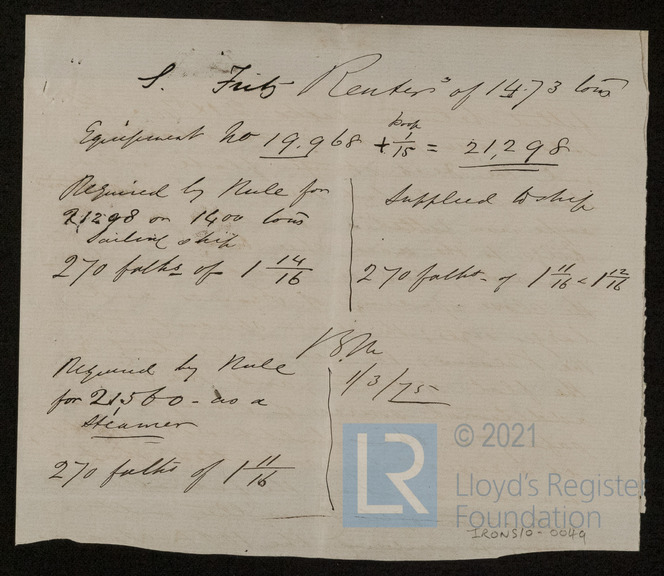 S. Fritz Reuter" of 1473 tons
Equipment No 19,968 + poop 1/15 = 21,298
Required by Rule for
21298 or 1400 tons
Sailing ship
270 faths of 1 14/16
Supplied to ship
270 faths - of 1 11/16 & 1 12/16
Required by Rule
for 21,560 - as a
Steamer
270 faths of 1 11/16
1/3/75
LR
© 2021
Lloyd's Register
Foundation
IRONS10-0049